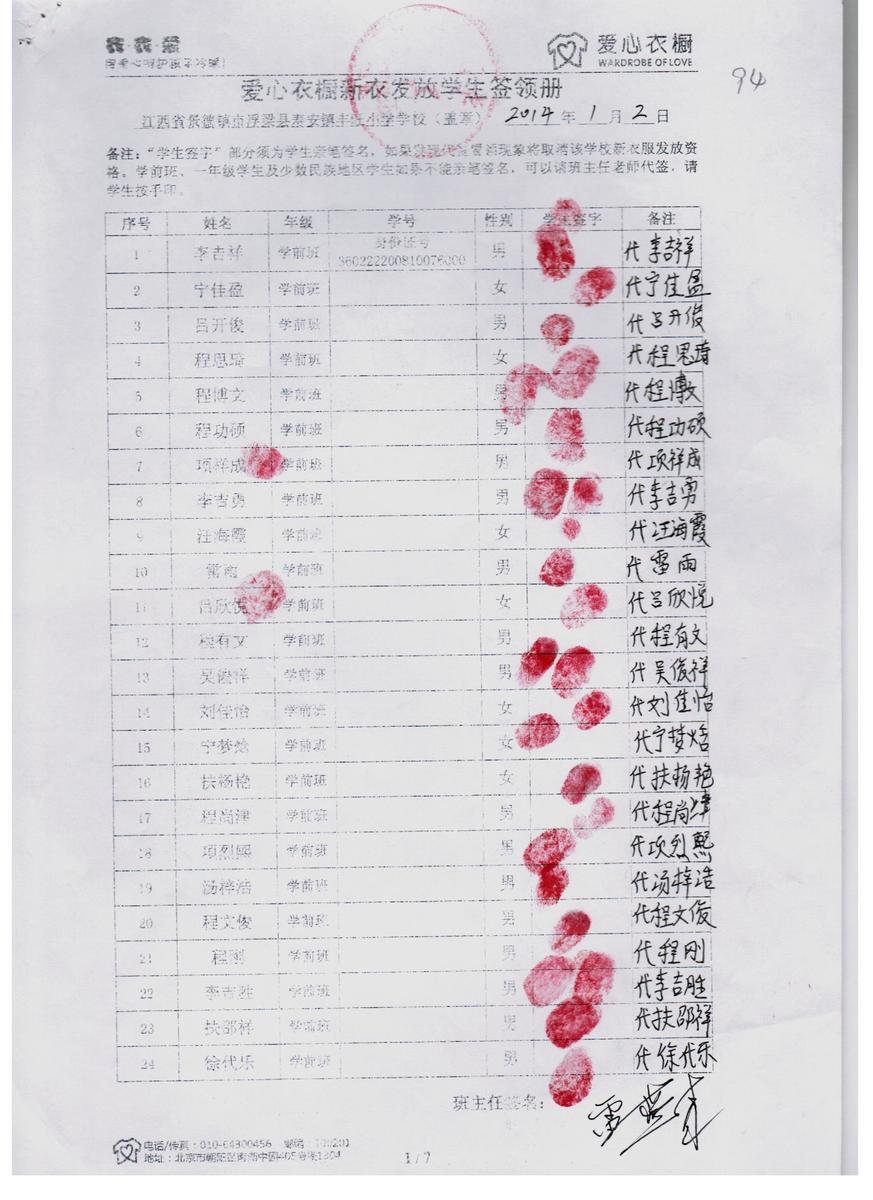 爱心衣橱
WARDROBE OF LOVE
94
爱心衣橱新衣发放学生签领册
江西省景德镇市浮梁县 学校（盖章） 2014 年 1 月 2 日
备注："学生签字"部分须为学生亲笔签名，如果发现代 冒领现象将取消该学校新衣服发放资
格。学前班、一年级学生及少数民族地区学生如果不能亲笔签名，可以请班主任老师代签，请
学生按手印。
序号 姓名 年级 学号 性别 学生签字 备注
1 李吉祥 学前班 身份证号 360222200810076000 男 代李吉祥
2 宁佳盈 学前班 女 代宁佳盈
3 吕开俊 学前班 男 代吕开俊
4 程思琦 学前班 女 代程思琦
5 程博文 学前班 男 代程博文
6 程功硕 学前班 男 代程功硕
7 项祥成 学前班 男 代项祥成
8 李吉勇 学前班 男 代李吉勇
9 汪海霞 学前班 女 代汪海霞
10 雷雨 学前班 男 代雷雨
11 吕欣悦 学前班 女 代吕欣悦
12 程有文 学前班 男 代程有文
13 吴俊祥 学前班 男 代吴俊祥
14 刘佳怡 学前班 女 代刘佳怡
15 宁梦焓 学前班 女 代宁梦焓
16 扶杨艳 学前班 女 代扶杨艳
17 程尚津 学前班 男 代程尚津
18 项烈熙 学前班 男 代项烈熙
19 汤梓浩 学前班 男 代汤梓浩
20 程文俊 学前班 男 代程文俊
21 程刚 学前班 男 代程刚
22 李吉胜 学前班 男 代李吉胜
23 扶邵祥 学前班 男 代扶邵祥
24 徐代乐 学前班 男 代徐代乐
班主任签名：
电话/传真：010-64300456 邮编：
地址：北京市朝阳区
1/7